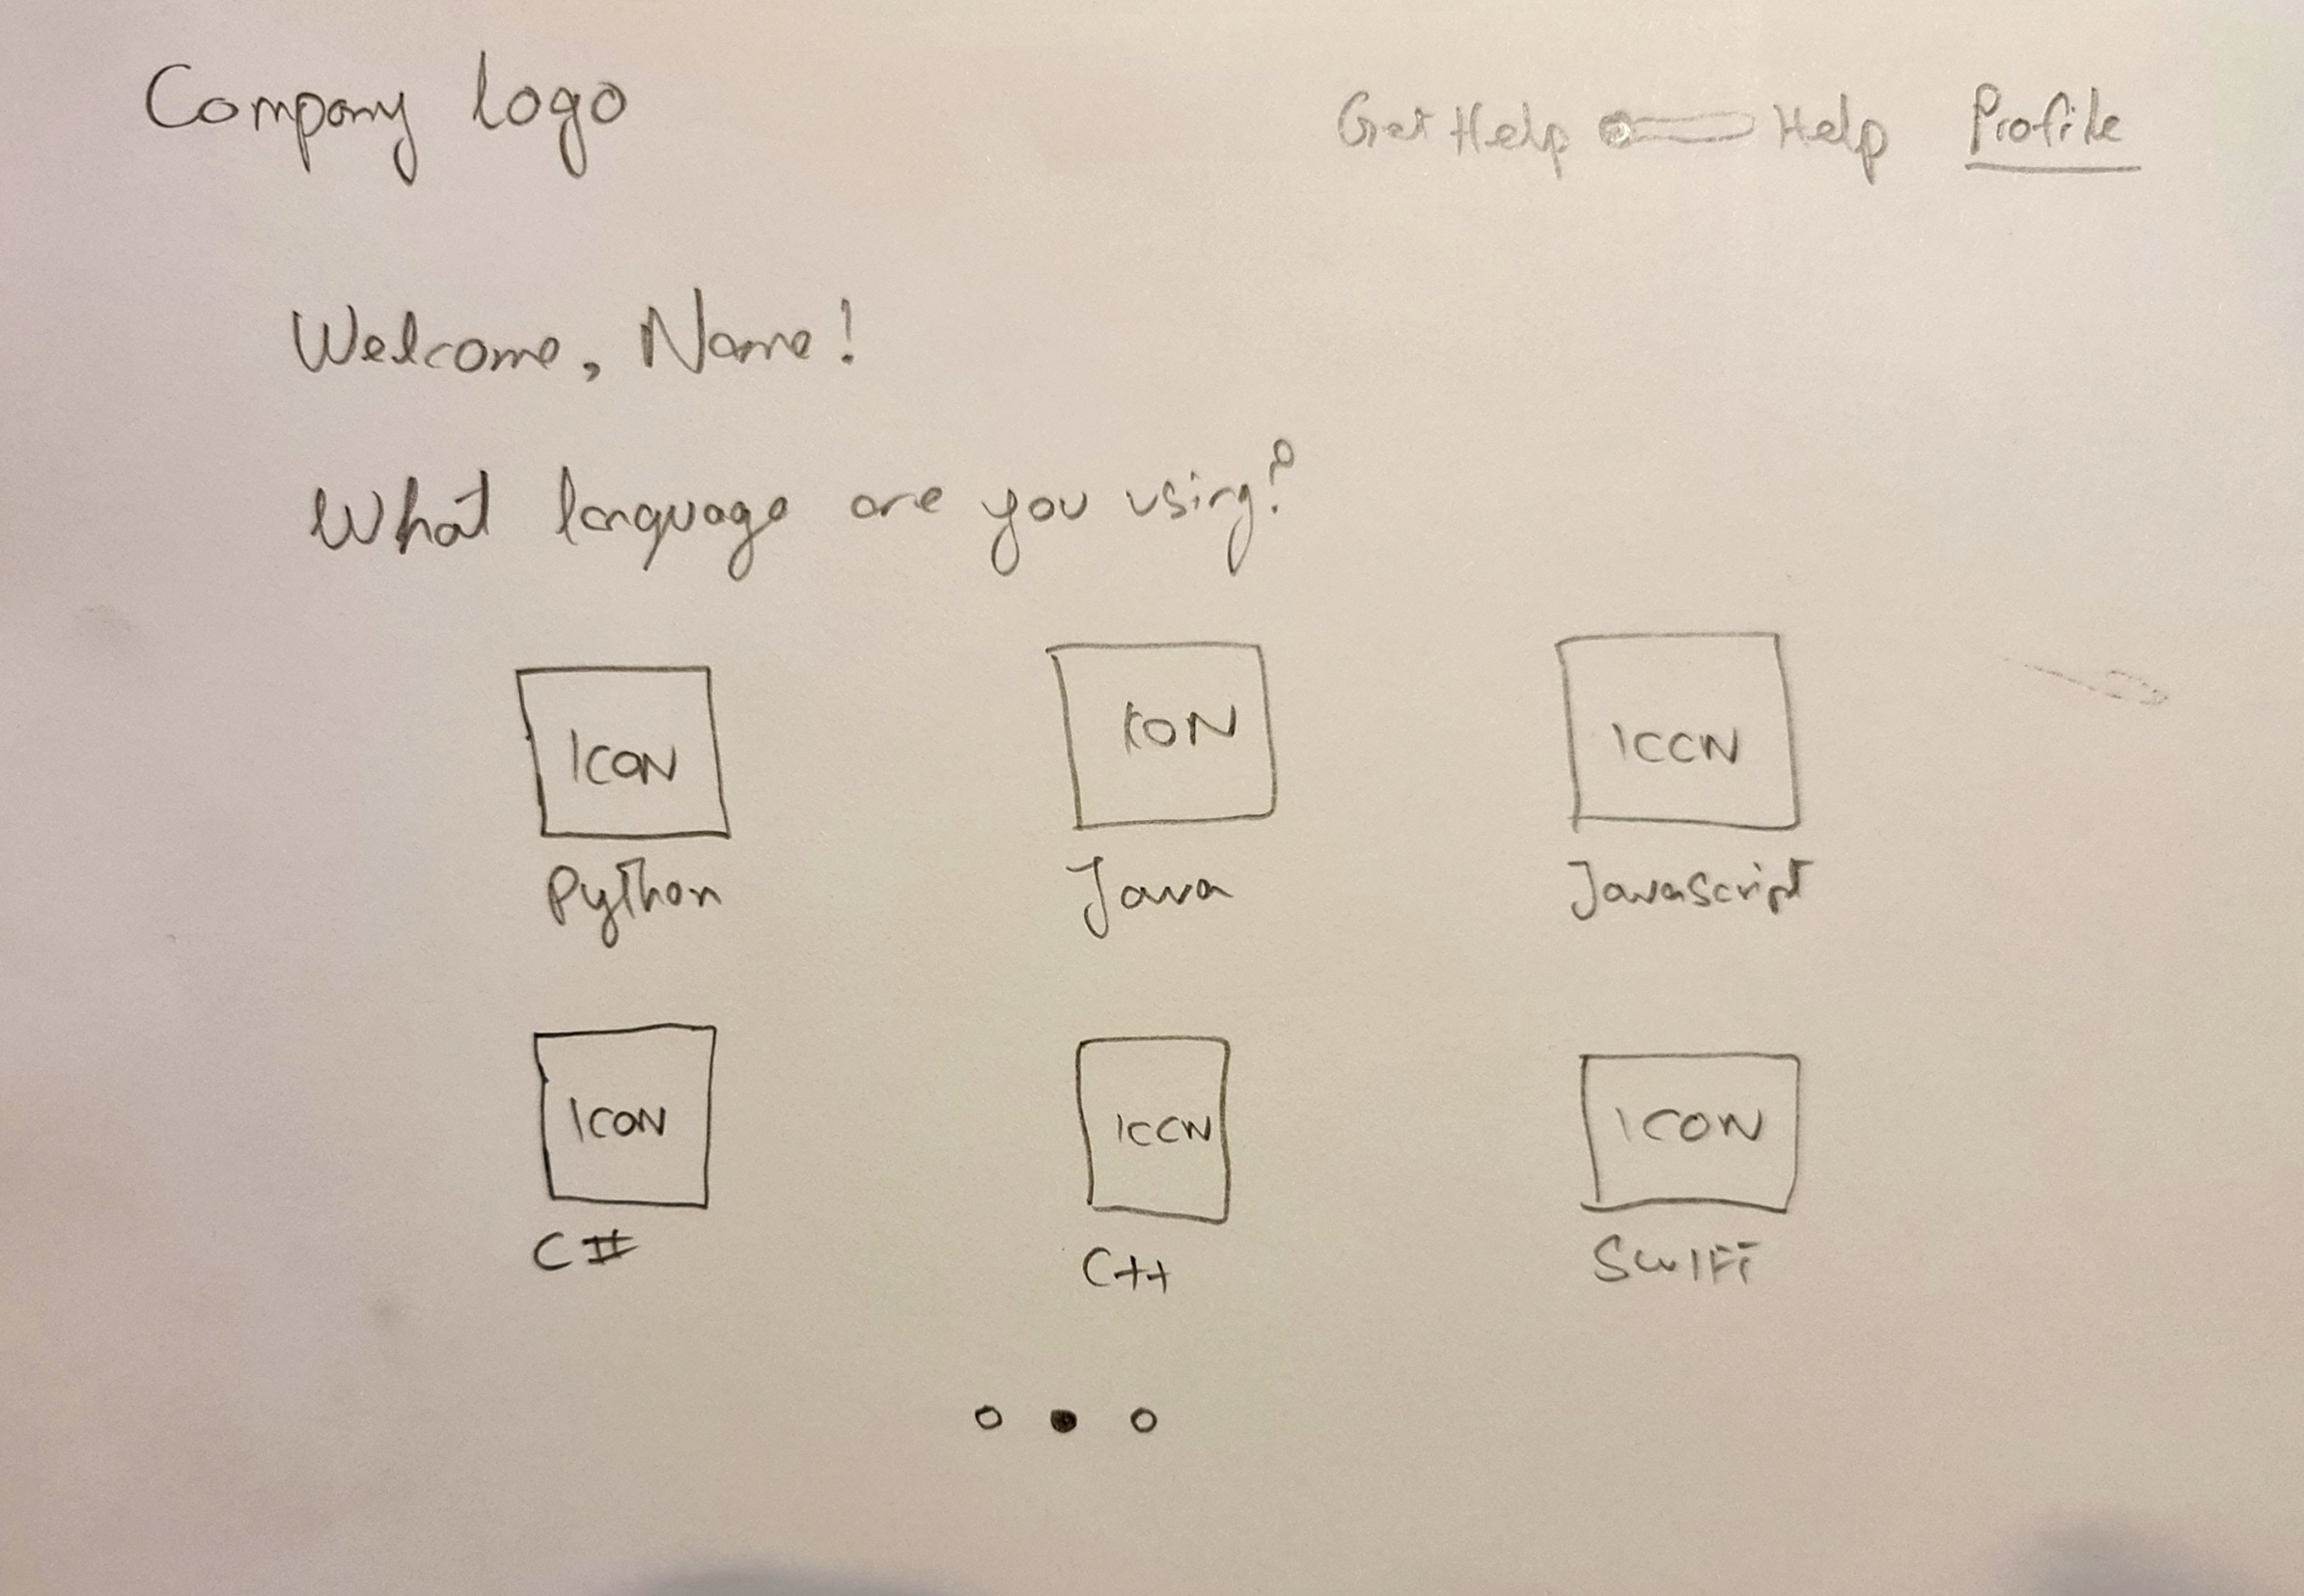 Company logo
Get Help Help Profile
Welcome, Name!
What language are you using?
ICON ICON ICON
Python Java Javascript
ICON ICON ICON
C# C++ SWIFT